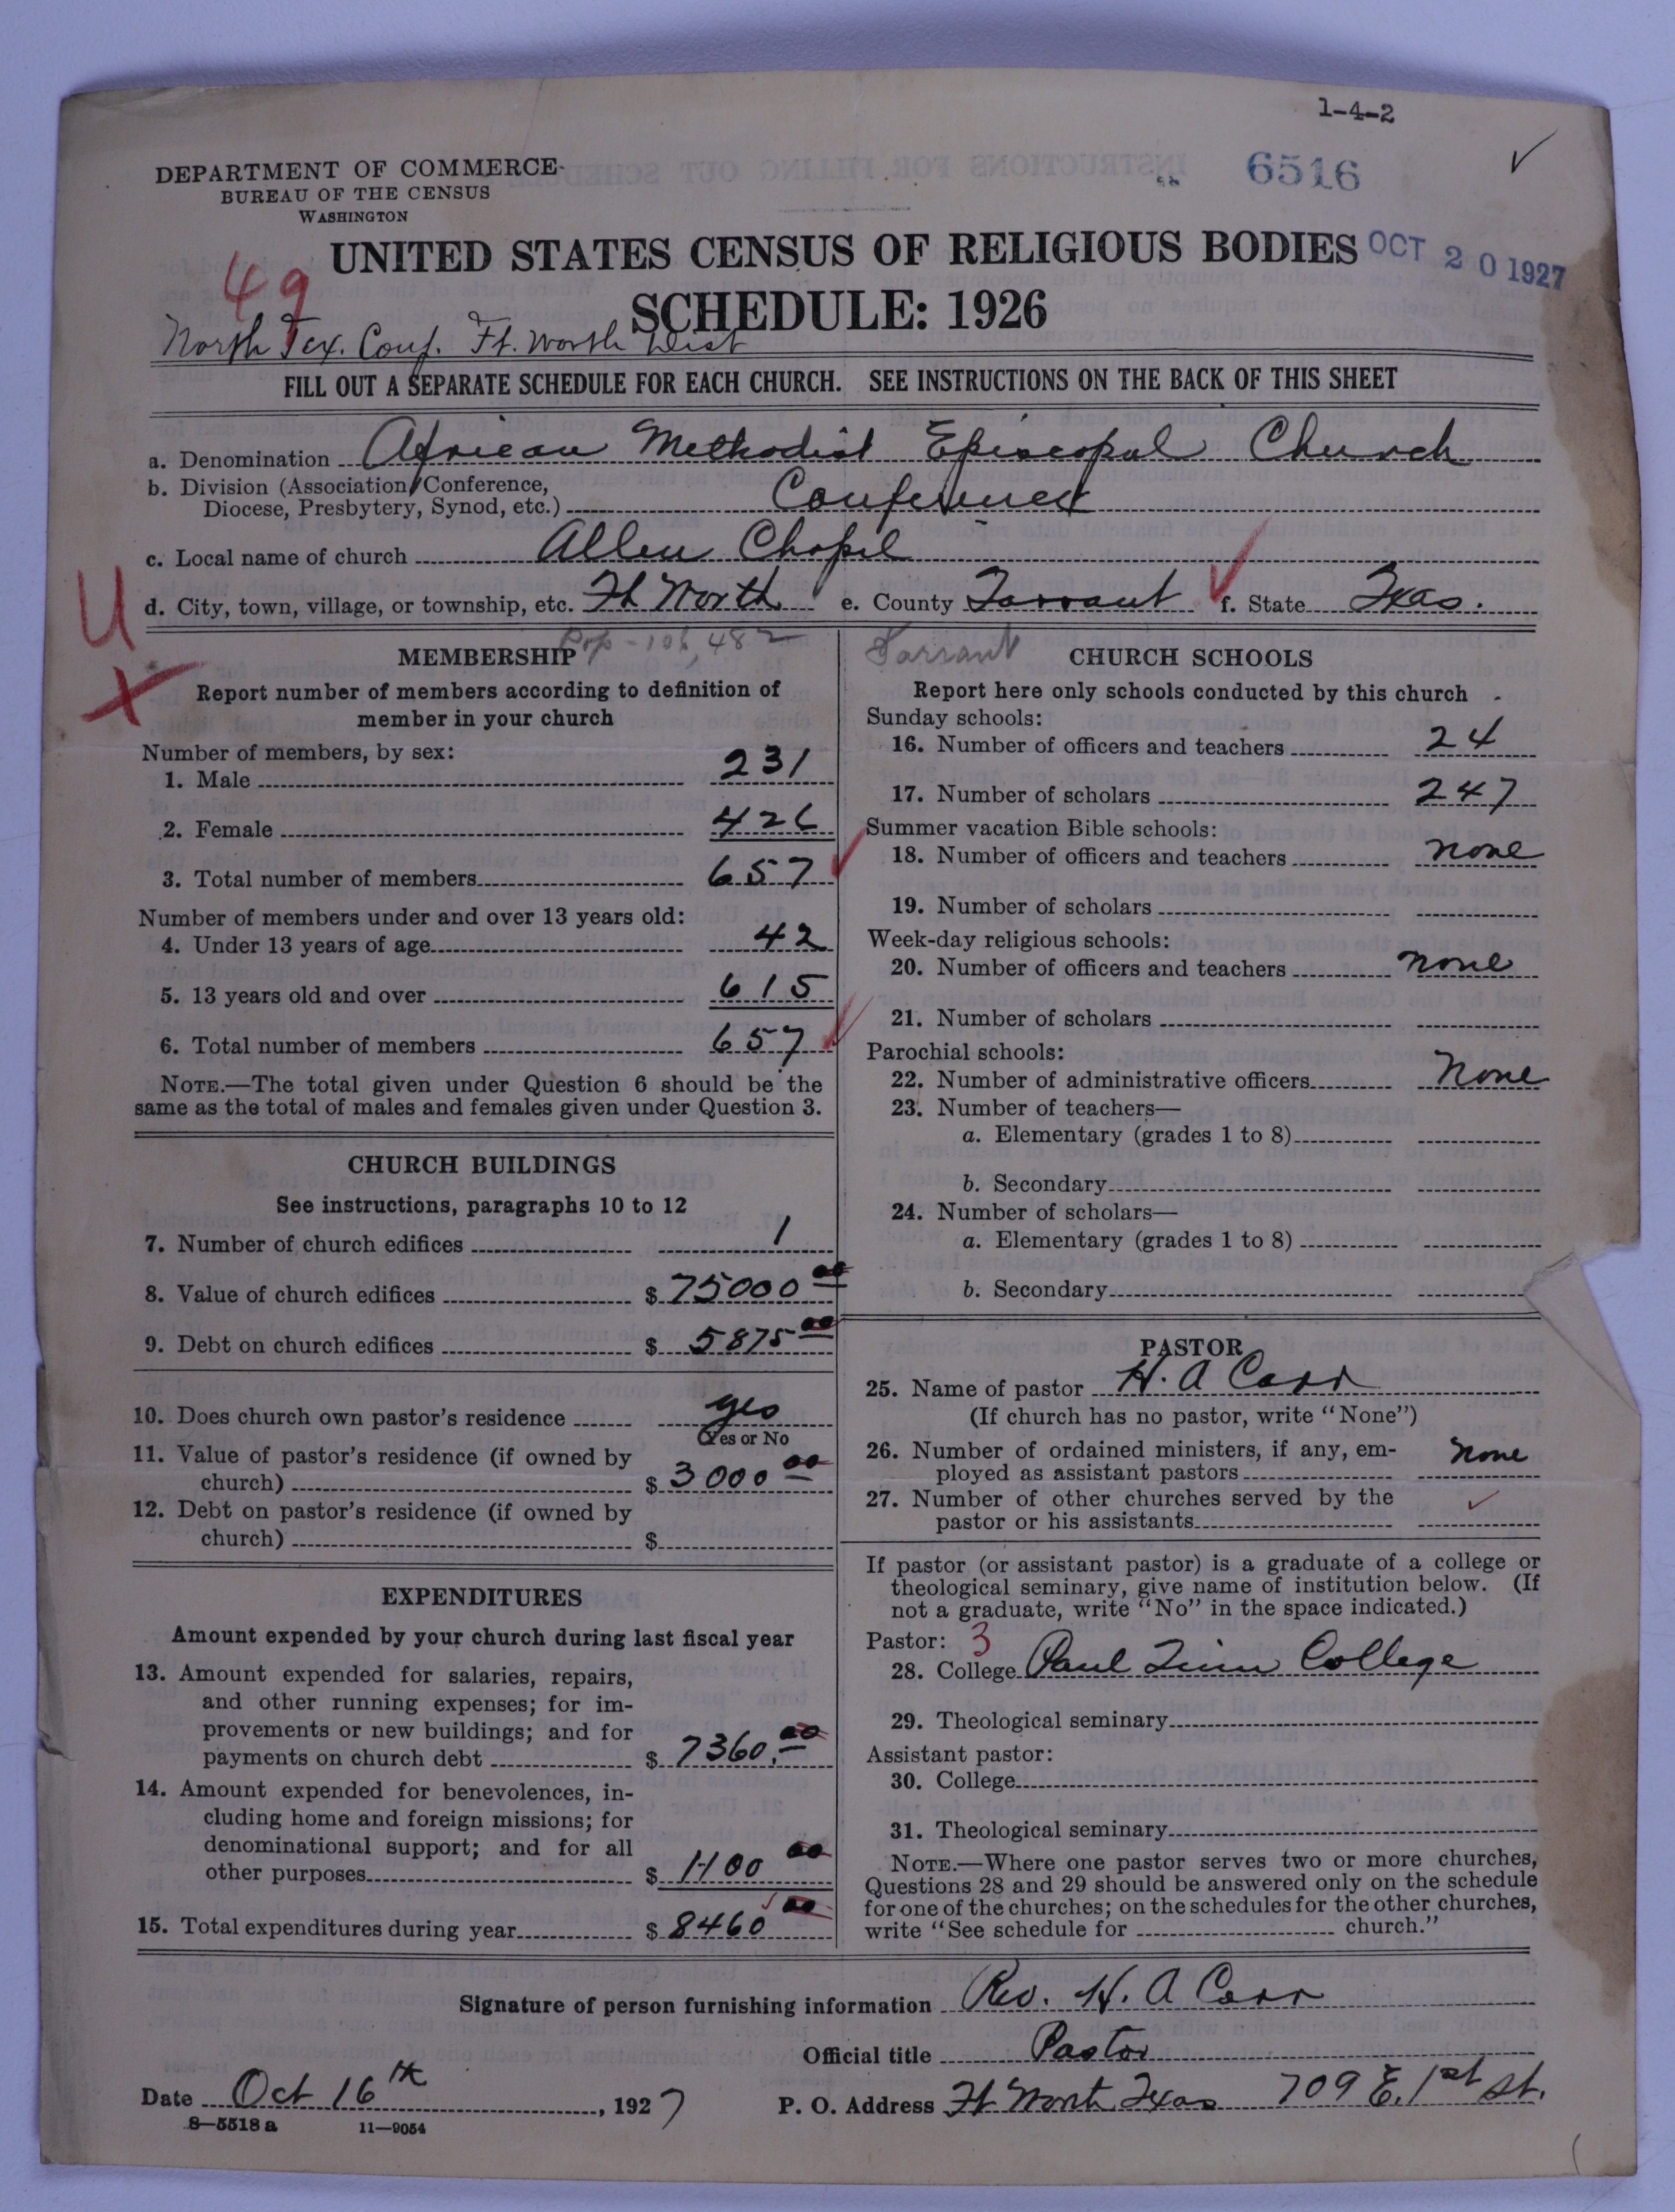 1-4-2
DEPARTMENT OF COMMERCE
BUREAU OF THE CENSUS
WASHINGTON
6516
UNITED STATES CENSUS OF RELIGIOUS BODIES
OCT 20 1927
49
SCHEDULE: 1926
North Tex. Conf. Ft. Worth Dist
FILL OUT A SEPARATE SCHEDULE FOR EACH CHURCH. SEE INSTRUCTIONS ON THE BACK OF THIS SHEET
a. Denomination African Methodist Episcopal Church
b. Division (Association, Conference,
Diocese, Presbytery, Synod, etc.) Conference
c. Local name of church Allen Chapel
d. City, town, village, or township, etc. Ft Worth e. County Tarrant f. State Texas.
U
Pop - 106,482
Tarrant
MEMBERSHIP
Report number of members according to definition of
member in your church
Number of members, by sex:
1. Male 231
2. Female 426
3. Total number of members 657
Number of members under and over 13 years old:
4. Under 13 years of age 42
5. 13 years old and over 615
6. Total number of members 657
NOTE.—The total given under Question 6 should be the
same as the total of males and females given under Question 3.
CHURCH BUILDINGS
See instructions, paragraphs 10 to 12
7. Number of church edifices 1
8. Value of church edifices $ 75000 00
9. Debt on church edifices $ 5875 00
10. Does church own pastor's residence yes
Yes or No
11. Value of pastor's residence (if owned by
church) $ 3000 00
12. Debt on pastor's residence (if owned by
church) $
EXPENDITURES
Amount expended by your church during last fiscal year
13. Amount expended for salaries, repairs,
and other running expenses; for im-
provements or new buildings; and for
payments on church debt $ 7360.00
14. Amount expended for benevolences, in-
cluding home and foreign missions; for
denominational support; and for all
other purposes $ 1100 00
15. Total expenditures during year $ 8460 00
CHURCH SCHOOLS
Report here only schools conducted by this church
Sunday schools:
16. Number of officers and teachers 24
17. Number of scholars 247
Summer vacation Bible schools:
18. Number of officers and teachers none
19. Number of scholars
Week-day religious schools:
20. Number of officers and teachers none
21. Number of scholars
Parochial schools:
22. Number of administrative officers None
23. Number of teachers—
a. Elementary (grades 1 to 8)
b. Secondary
24. Number of scholars—
a. Elementary (grades 1 to 8)
b. Secondary
PASTOR
25. Name of pastor H. A Carr
(If church has no pastor, write "None")
26. Number of ordained ministers, if any, em-
ployed as assistant pastors none
27. Number of other churches served by the
pastor or his assistants
If pastor (or assistant pastor) is a graduate of a college or
theological seminary, give name of institution below. (If
not a graduate, write "No" in the space indicated.)
Pastor: 3
28. College Paul Quinn College
29. Theological seminary
Assistant pastor:
30. College
31. Theological seminary
NOTE.—Where one pastor serves two or more churches,
Questions 28 and 29 should be answered only on the schedule
for one of the churches; on the schedules for the other churches,
write "See schedule for church."
Signature of person furnishing information Rev. H. A Carr
Official title Pastor
Date Oct 16th, 1927 P. O. Address Ft Worth Texas 709 E. 1st St.
8—5518 a 11—9054